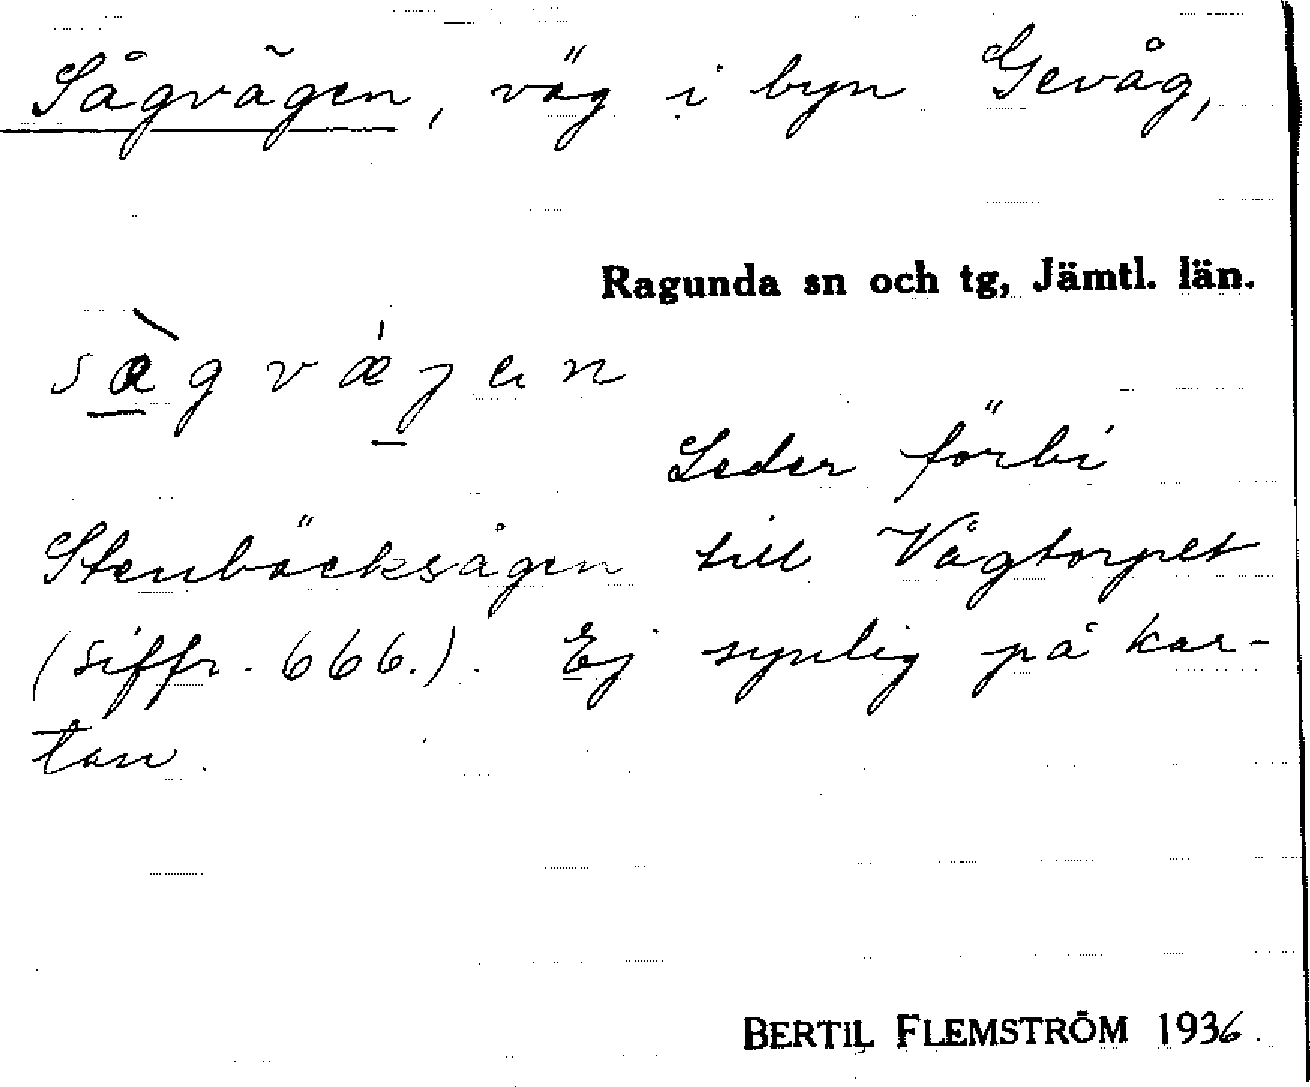 Sågvägen, väg i byn Gevåg,
Ragunda sn och tg, Jämtl. län.
Leder förbi
Stenbäcksågen till Vågtorpet
(siffr. 666.). Ej synlig på kar-
tan.
BERTIL FLEMSTRÖM 1936.